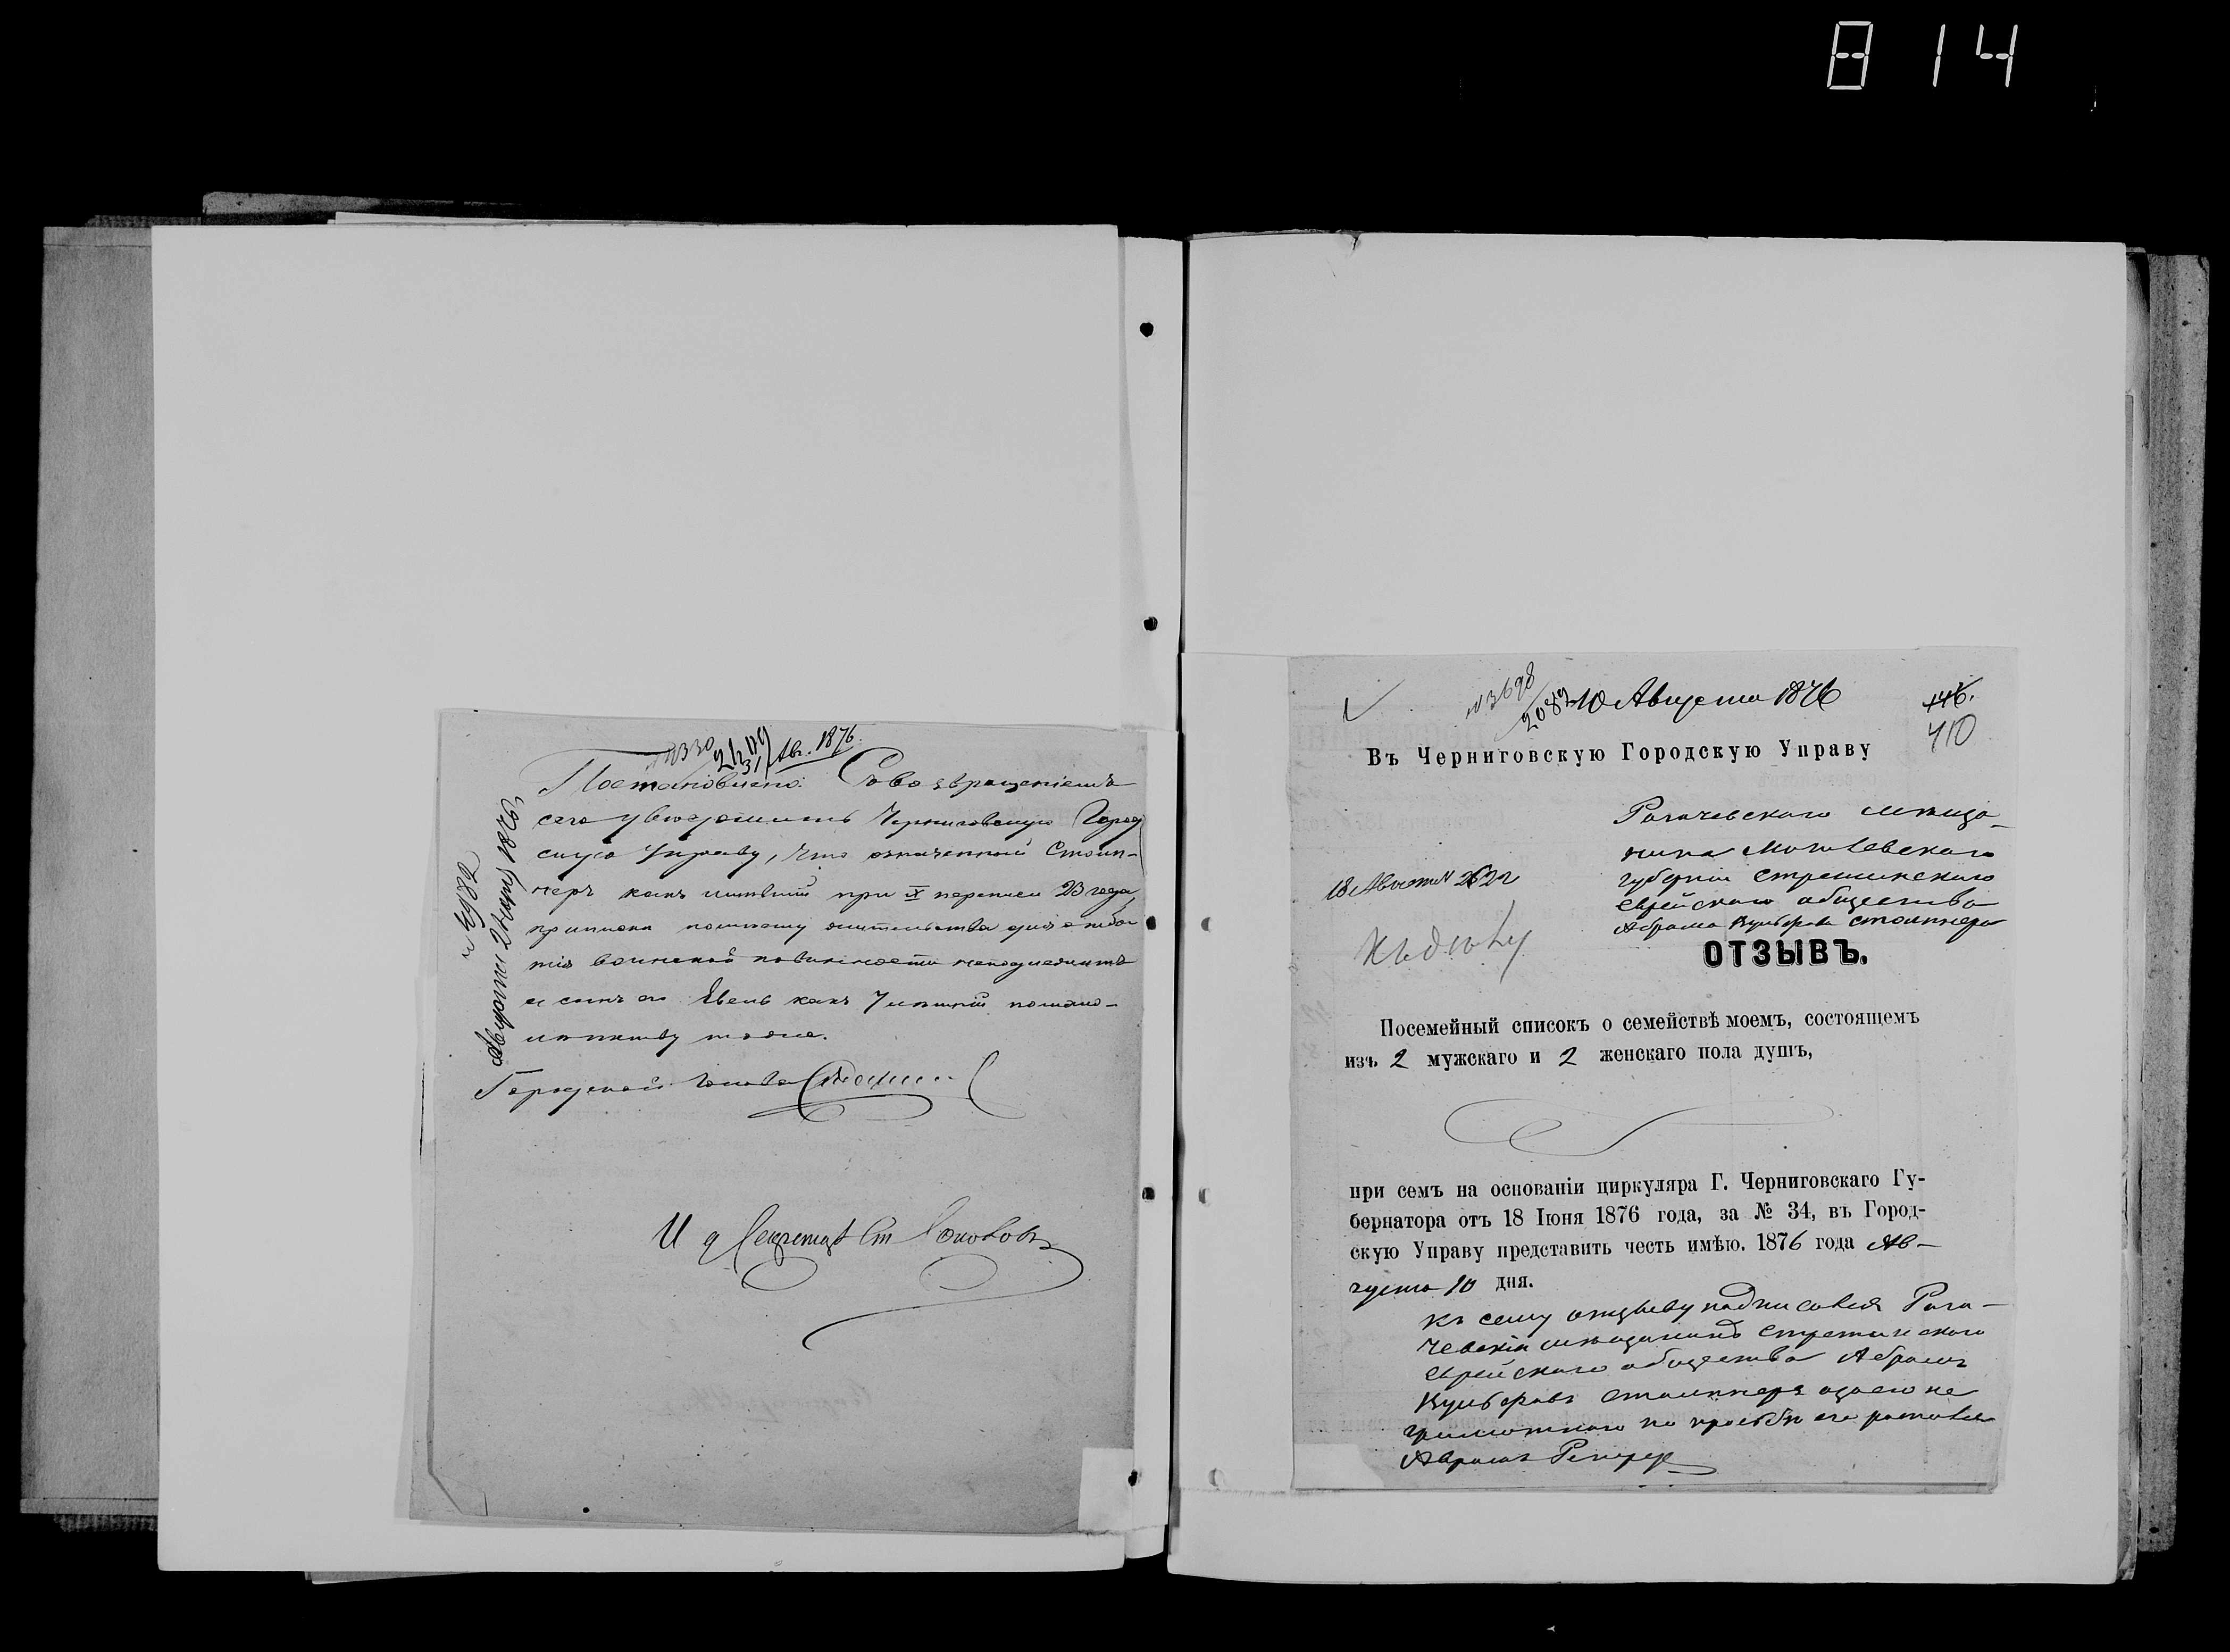 814
2179
31 Авг. 1876.
Постановлено: Съ возвращеніемъ
сего увѣдомить Черниговскую Город
скую Управу, что означенный Стоип-
неръ какъ имѣвшій при X переписи 23 года,
приписки по жительства для отбы
тія воинской повинности неподлежитъ
и сынъ его какъ по мало-
лѣтству тоже.
Городской Голова
И д Секретаря
№ 4982
Августа 24 дня 1876
№ 3698
2082
10 Августа 1876
146.
410
Въ Черниговскую Городскую Управу
Рогачевскаго мѣща-
нина Могилевской
губерніи Стрешинскаго
еврейскаго общества
Абрама Стоипнера
18 Августа
Къ дѣлу
ОТЗЫВЪ.
Посемейный списокъ о семействѣ моемъ, состоящемъ
изъ 2 мужскаго и 2 женскаго пола душъ,
при семъ на основаніи циркуляра Г. Черниговскаго Гу-
бернатора отъ 18 Іюня 1876 года, за № 34, въ Город-
скую Управу представить честь имѣю. 1876 года Ав-
густа 10 дня.
Къ сему отзыву подписался Рога-
чевскій мѣщанинъ Стрешинскаго
еврейскаго общества Абрамъ
Стоипнеръ а за его не
грамотнаго по просьбѣ его росписался
Абрамъ